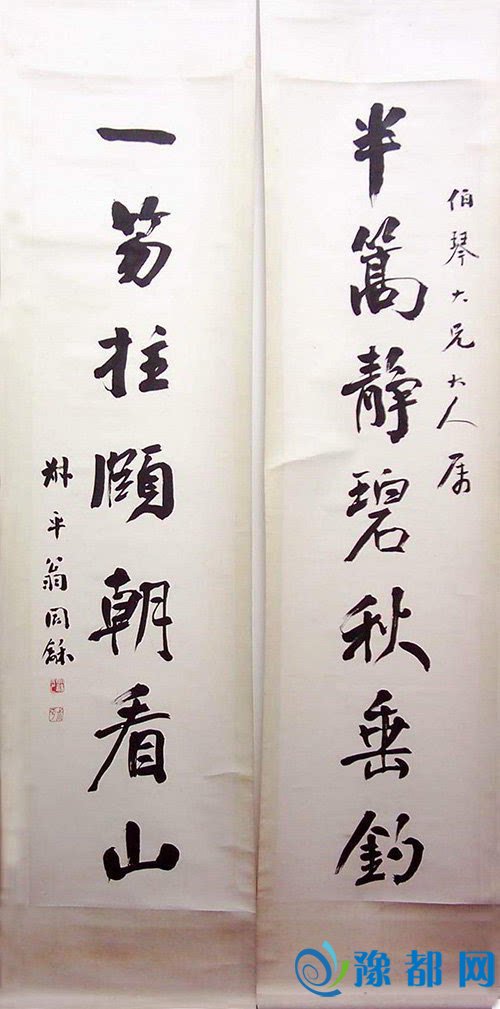 伯琴大兄大人属
半篙静碧秋垂钓
一笏拄颐朝看山
叔平翁同龢
豫都网